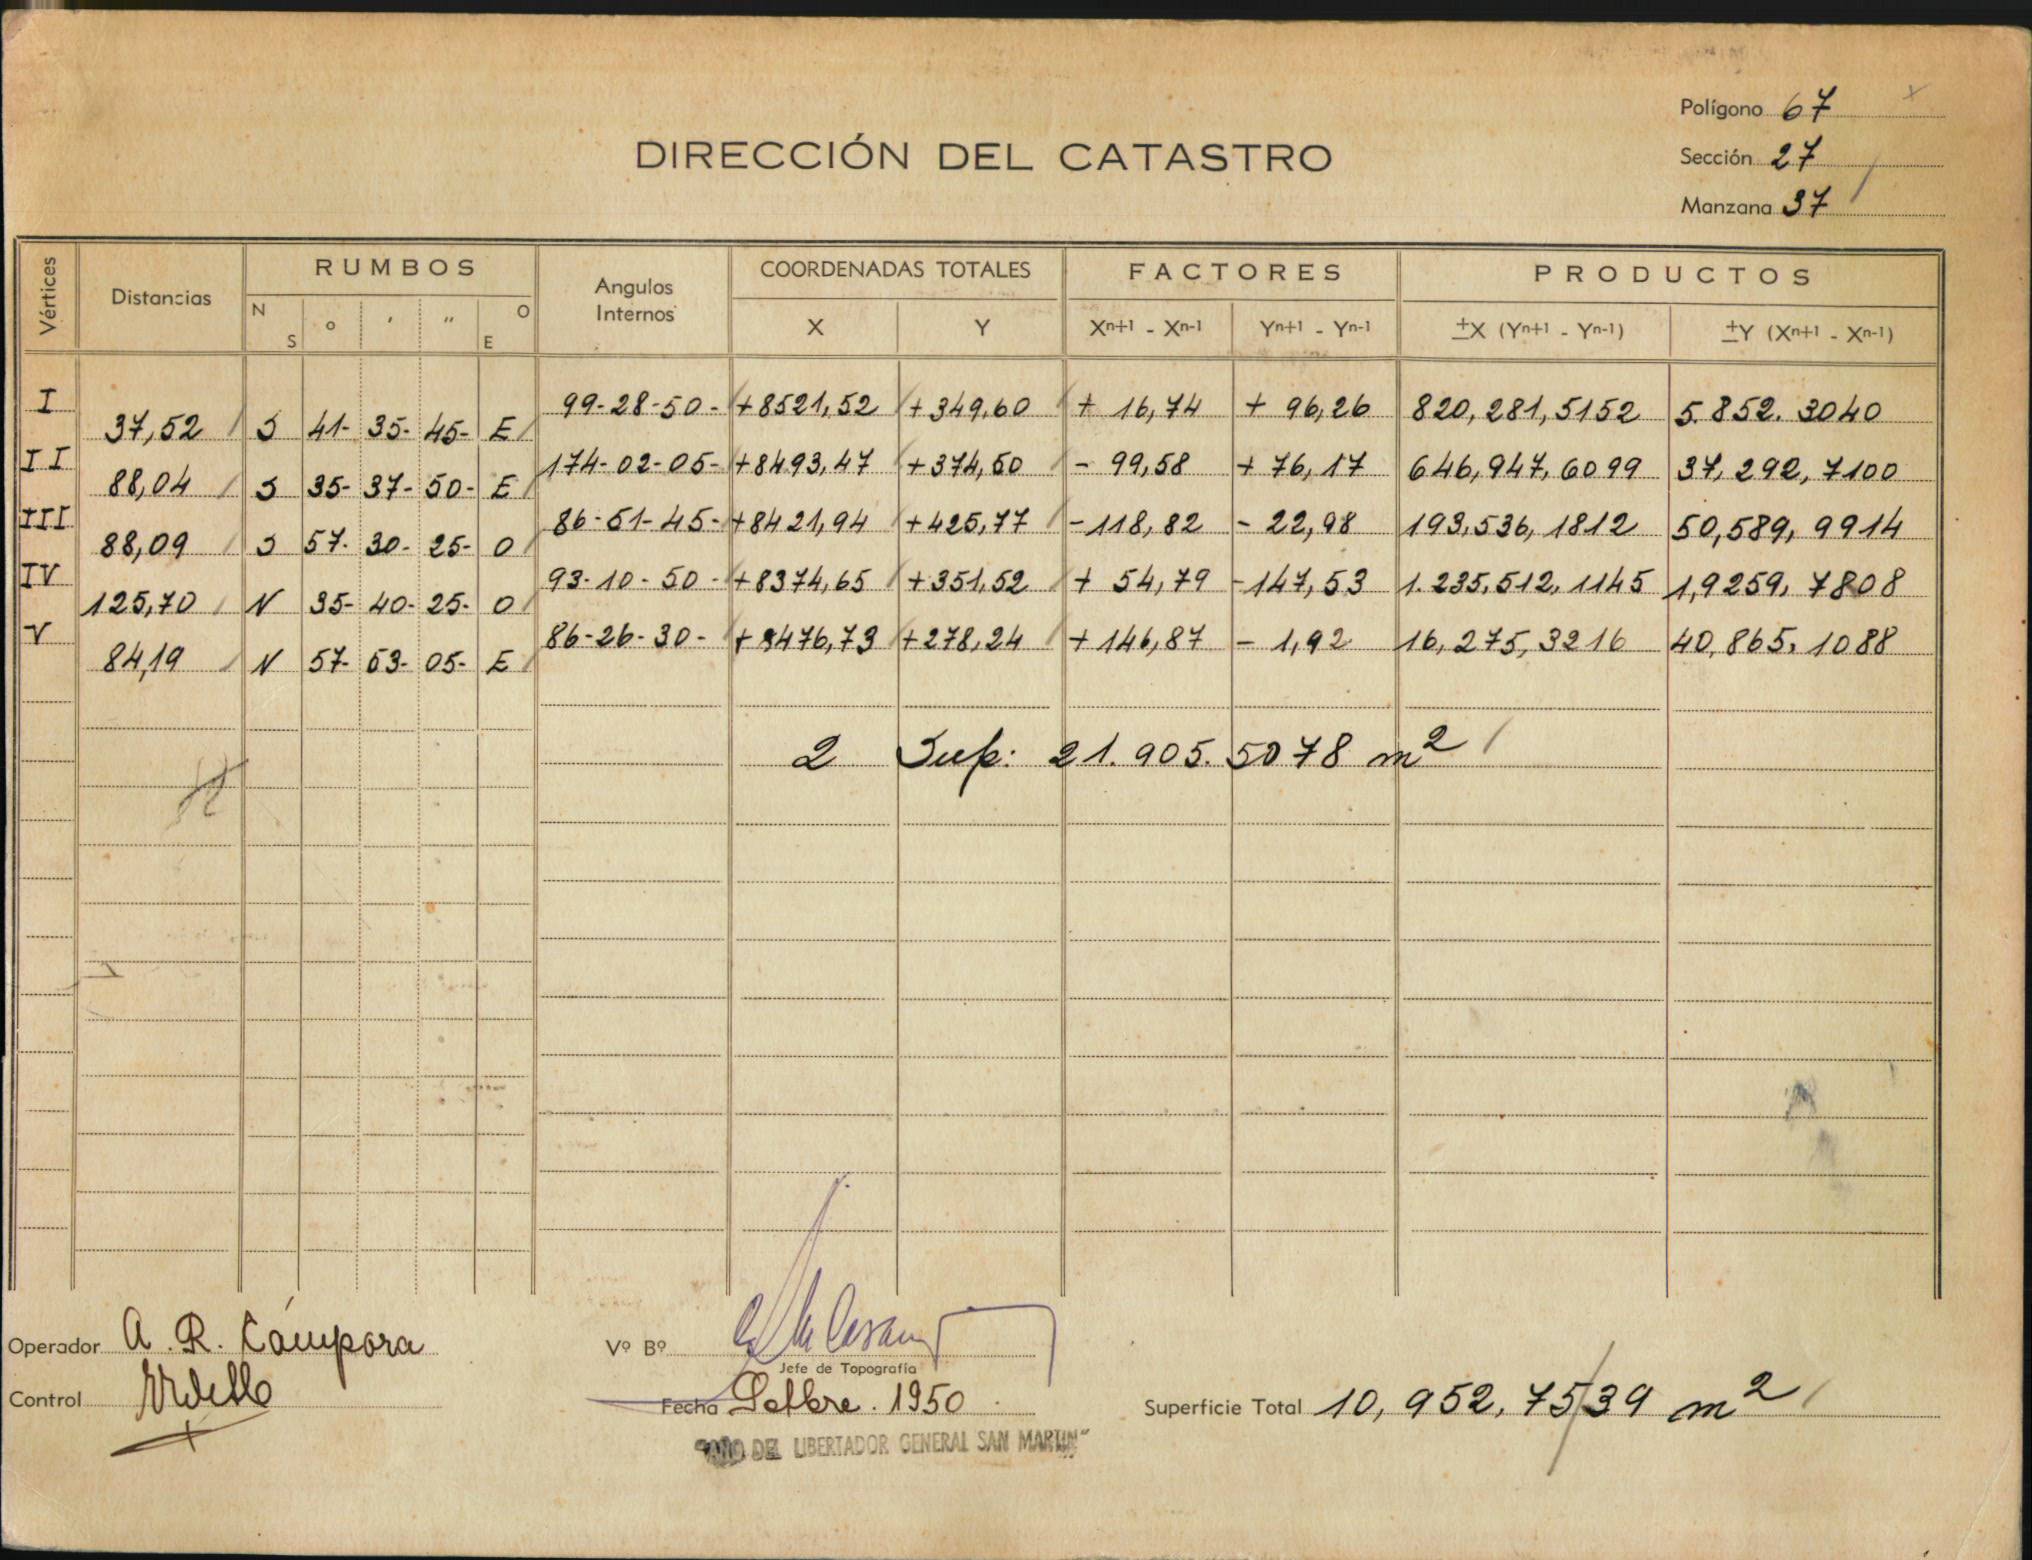 Polígono 67
DIRECCIÓN DEL CATASTRO
Sección 27
Manzana 37
Vértices Distancias RUMBOS Angulos Internos COORDENADAS TOTALES FACTORES PRODUCTOS
N S o ' " O E X Y Xn+1 - Xn-1 Yn+1 - Yn-1 ±X (Yn+1 - Yn-1) ±Y (Xn+1 - Xn-1)
I 99-28-50- +8521,52 +349,60 + 16,74 + 96,26 820,281,5152 5.852.3040
37,52 S 41- 35- 45- E
II 174-02-05- +8493,47 +374,50 - 99,58 + 76,17 646,947,6099 37,292,7100
88,04 S 35- 37- 50- E
III 86-51-45- +8421,94 +425,77 -118,82 - 22,98 193,536,1812 50,589,9914
88,09 S 57- 30- 25- O
IV 93-10-50- +8374,65 +351,52 + 54,79 -147,53 1.235,512,1145 1,9259,7808
125,70 N 35- 40- 25- O
V 86-26-30- +8476,73 +278,24 + 146,87 - 1,92 16,275,3216 40,865,1088
84,19 N 57- 53- 05- E
2 Sup: 21.905.5078 m2
Operador A. R. Cámpora
Vº Bº
Jefe de Topografía
Control
Fecha Setbre. 1950
Superficie Total 10,952,7539 m2
"AÑO DEL LIBERTADOR GENERAL SAN MARTIN"